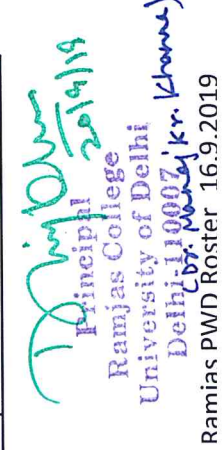 20/9/19
Principal
Ramjas College
University of Delhi
Delhi-110007
(Dr. Manoj Kr. Khanna)
Ramjas PWD Roster 16.9.2019